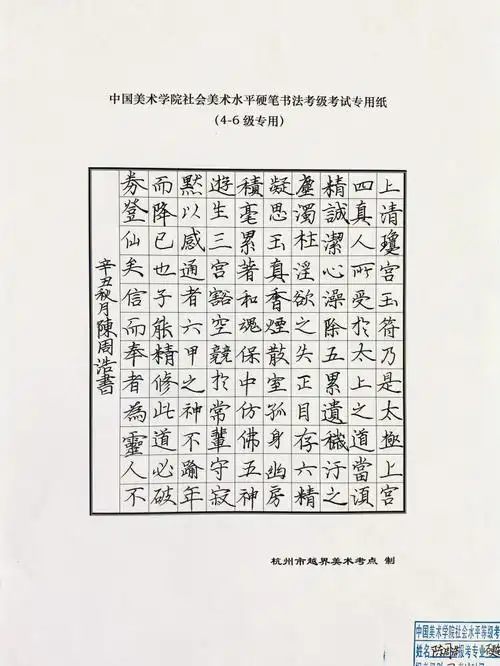 中国美术学院社会美术水平硬笔书法考级考试专用纸
（4-6级专用）
上清瓊宮玉符乃是太極上宮
四真人所受於太上之道當須
精誠潔心澡除五累遺穢汙之
塵濁杜淫欲之失正目存六精
凝思玉真香煙散室孤身幽房
積毫累著和魂保中仿佛五神
遊生三宮豁空競於常輩守寂
默以感通者六甲之神不踰年
而降已也子能精修此道必破
券登仙矣信而奉者為靈人不
辛丑秋月陳周浩書
杭州市越界美术考点 制
中国美术学院社会水平等级考
姓名 报考专业